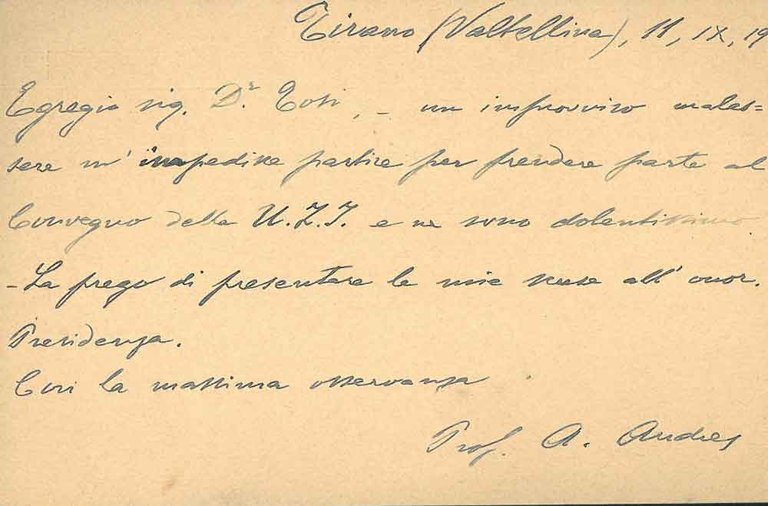 Tirano (Valtellina), 11, IX, 19
Egregio sig. Dr. Tosi, - un improvviso males=
sere m' impedisce partire per prendere parte al
Convegno della U.Z.I. e ne sono dolentissimo
- La prego di presentare le mie scuse all' onor.
Presidenza.
Con la massima osservanza
Prof. A. Andres